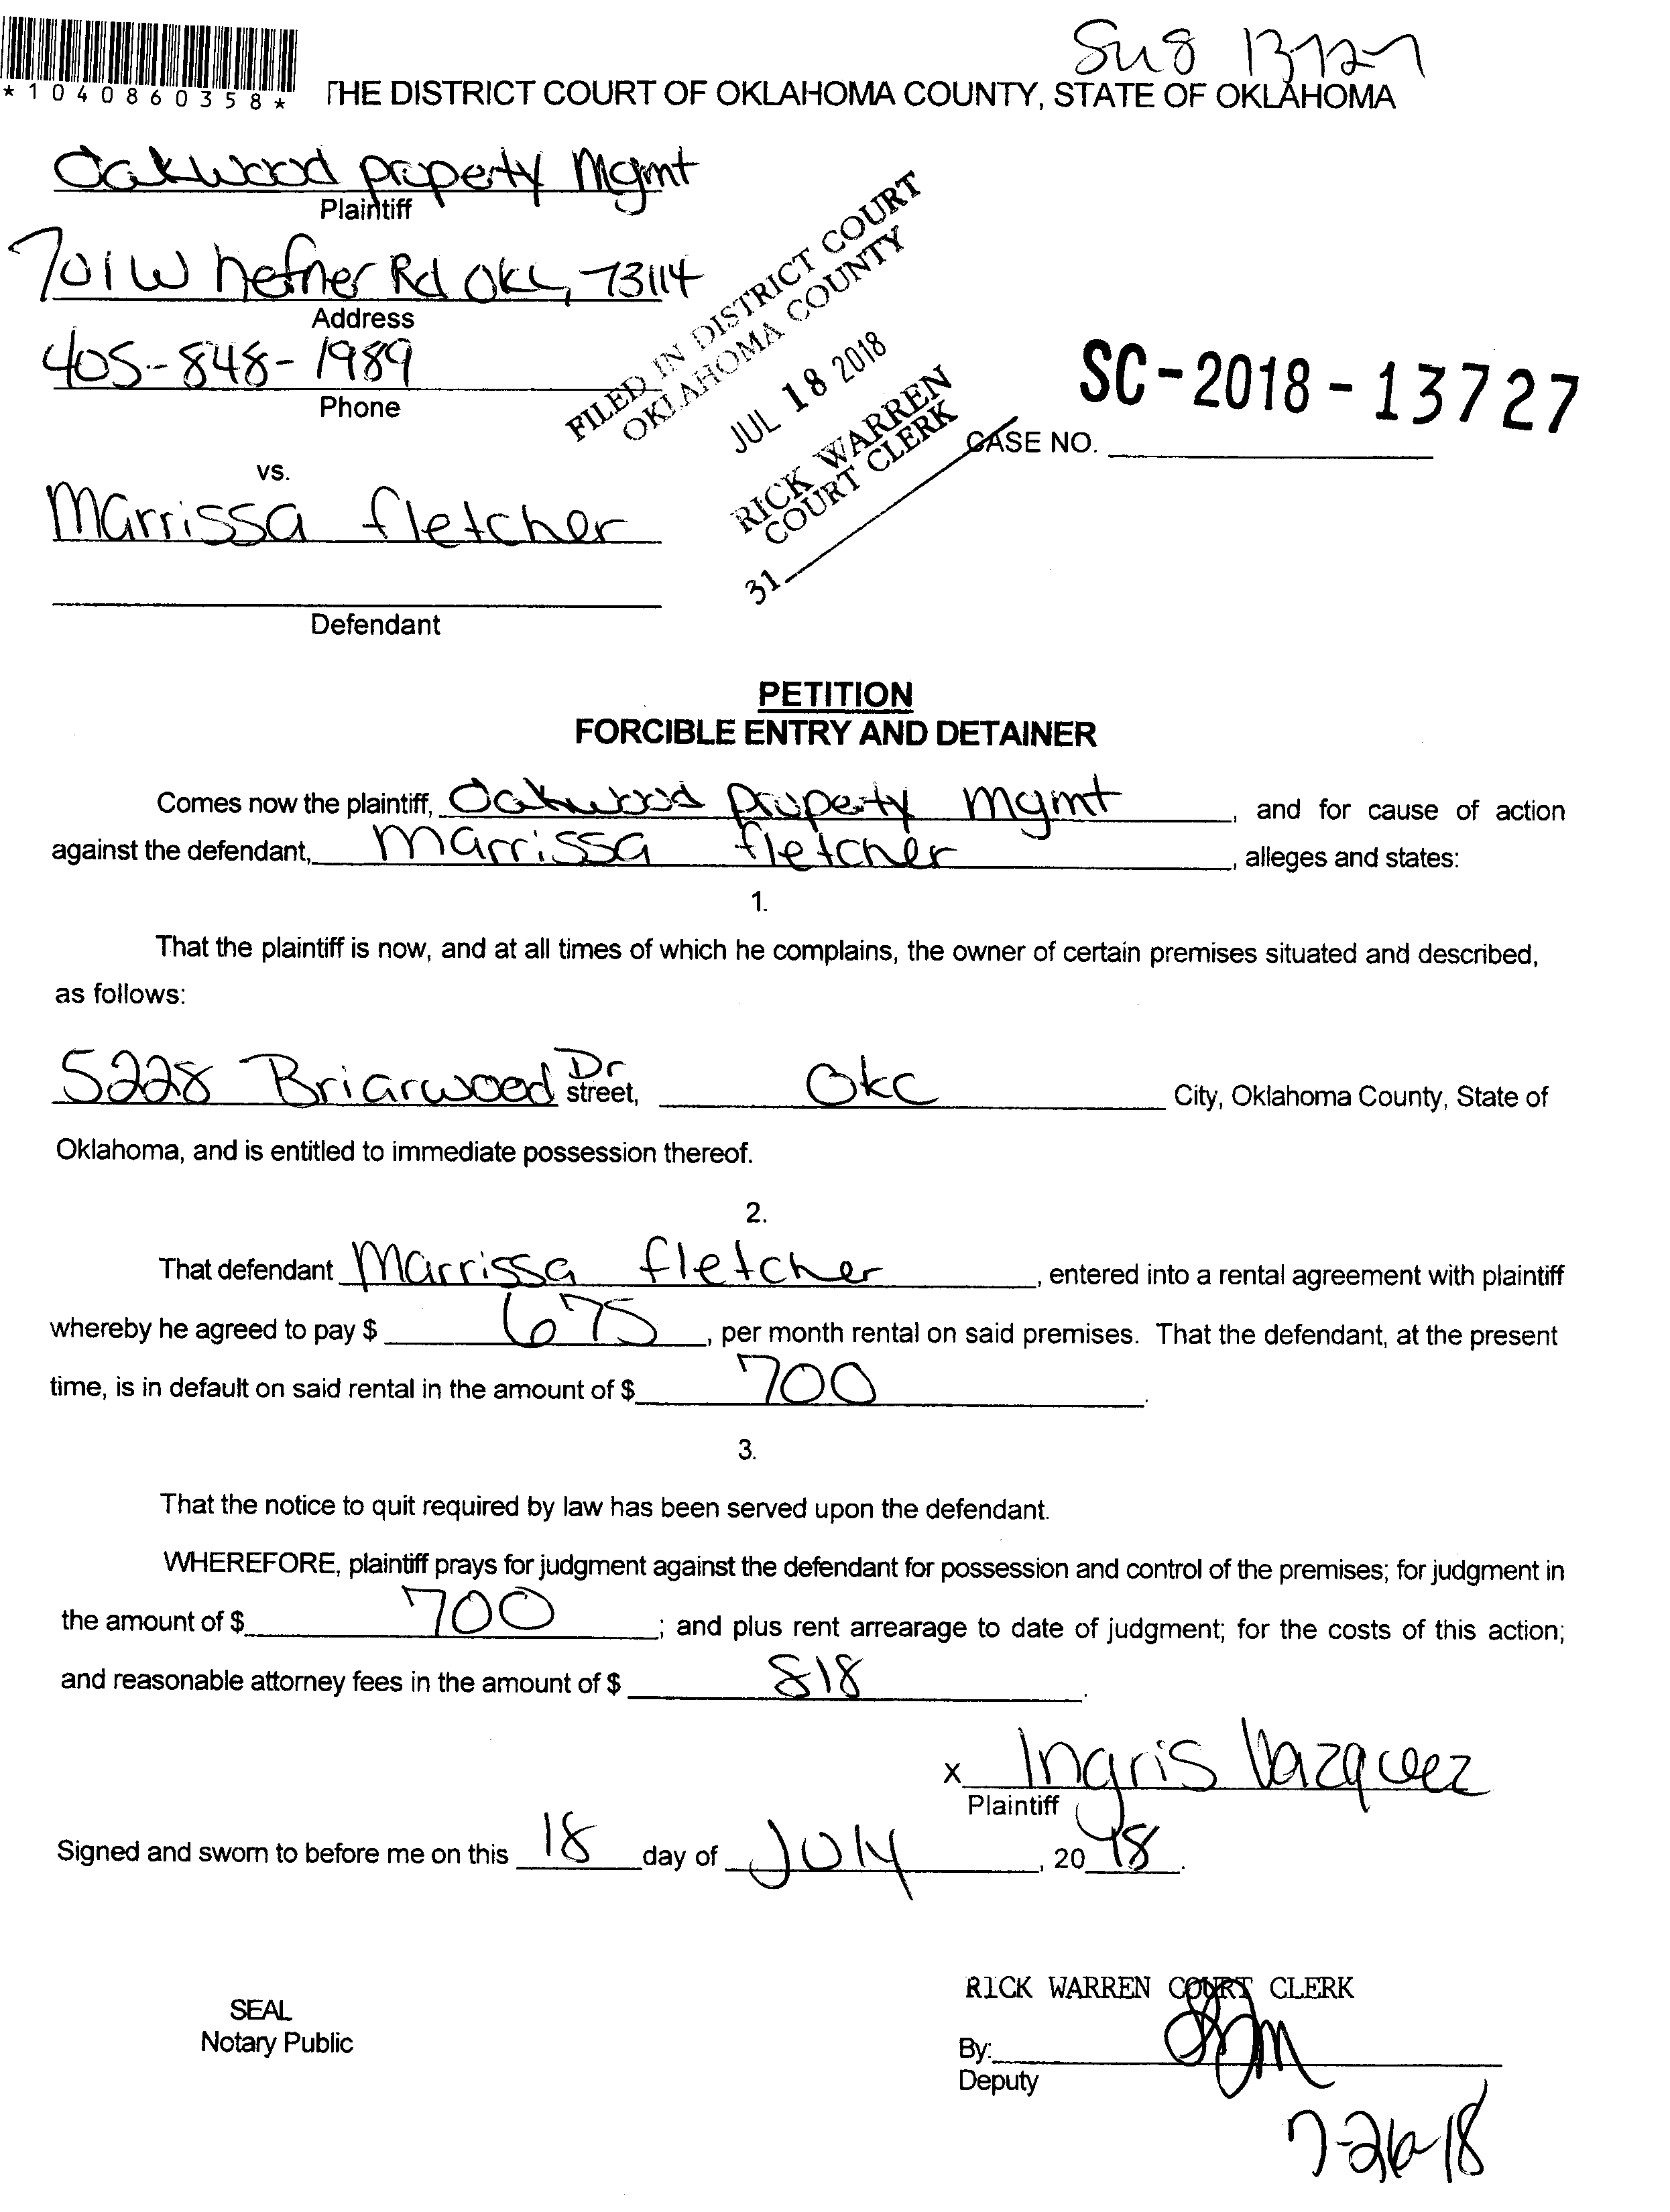 Su8 13727
*1040860358*
THE DISTRICT COURT OF OKLAHOMA COUNTY, STATE OF OKLAHOMA
Oakwood property Mgmt
Plaintiff
701 W hefner Rd OKC, 73114
Address
405-848-1989
Phone
FILED IN DISTRICT COURT
OKLAHOMA COUNTY
JUL 18 2018
RICK WARREN
COURT CLERK
31
SC-2018-13727
CASE NO.
vs.
Marrissa fletcher
Defendant
PETITION
FORCIBLE ENTRY AND DETAINER
Comes now the plaintiff, Oakwood property mgmt, and for cause of action
against the defendant, Marrissa fletcher, alleges and states:
1.
That the plaintiff is now, and at all times of which he complains, the owner of certain premises situated and described,
as follows:
5228 Briarwood Dr street, Okc City, Oklahoma County, State of
Oklahoma, and is entitled to immediate possession thereof.
2.
That defendant Marrissa fletcher, entered into a rental agreement with plaintiff
whereby he agreed to pay $ 675, per month rental on said premises. That the defendant, at the present
time, is in default on said rental in the amount of $ 700.
3.
That the notice to quit required by law has been served upon the defendant.
WHEREFORE, plaintiff prays for judgment against the defendant for possession and control of the premises; for judgment in
the amount of $ 700; and plus rent arrearage to date of judgment; for the costs of this action;
and reasonable attorney fees in the amount of $ 818.
x Ingris Vazquez
Plaintiff
Signed and sworn to before me on this 18 day of JUly, 20 18.
RICK WARREN COURT CLERK
SEAL
Notary Public
By:
Deputy
7-26-18